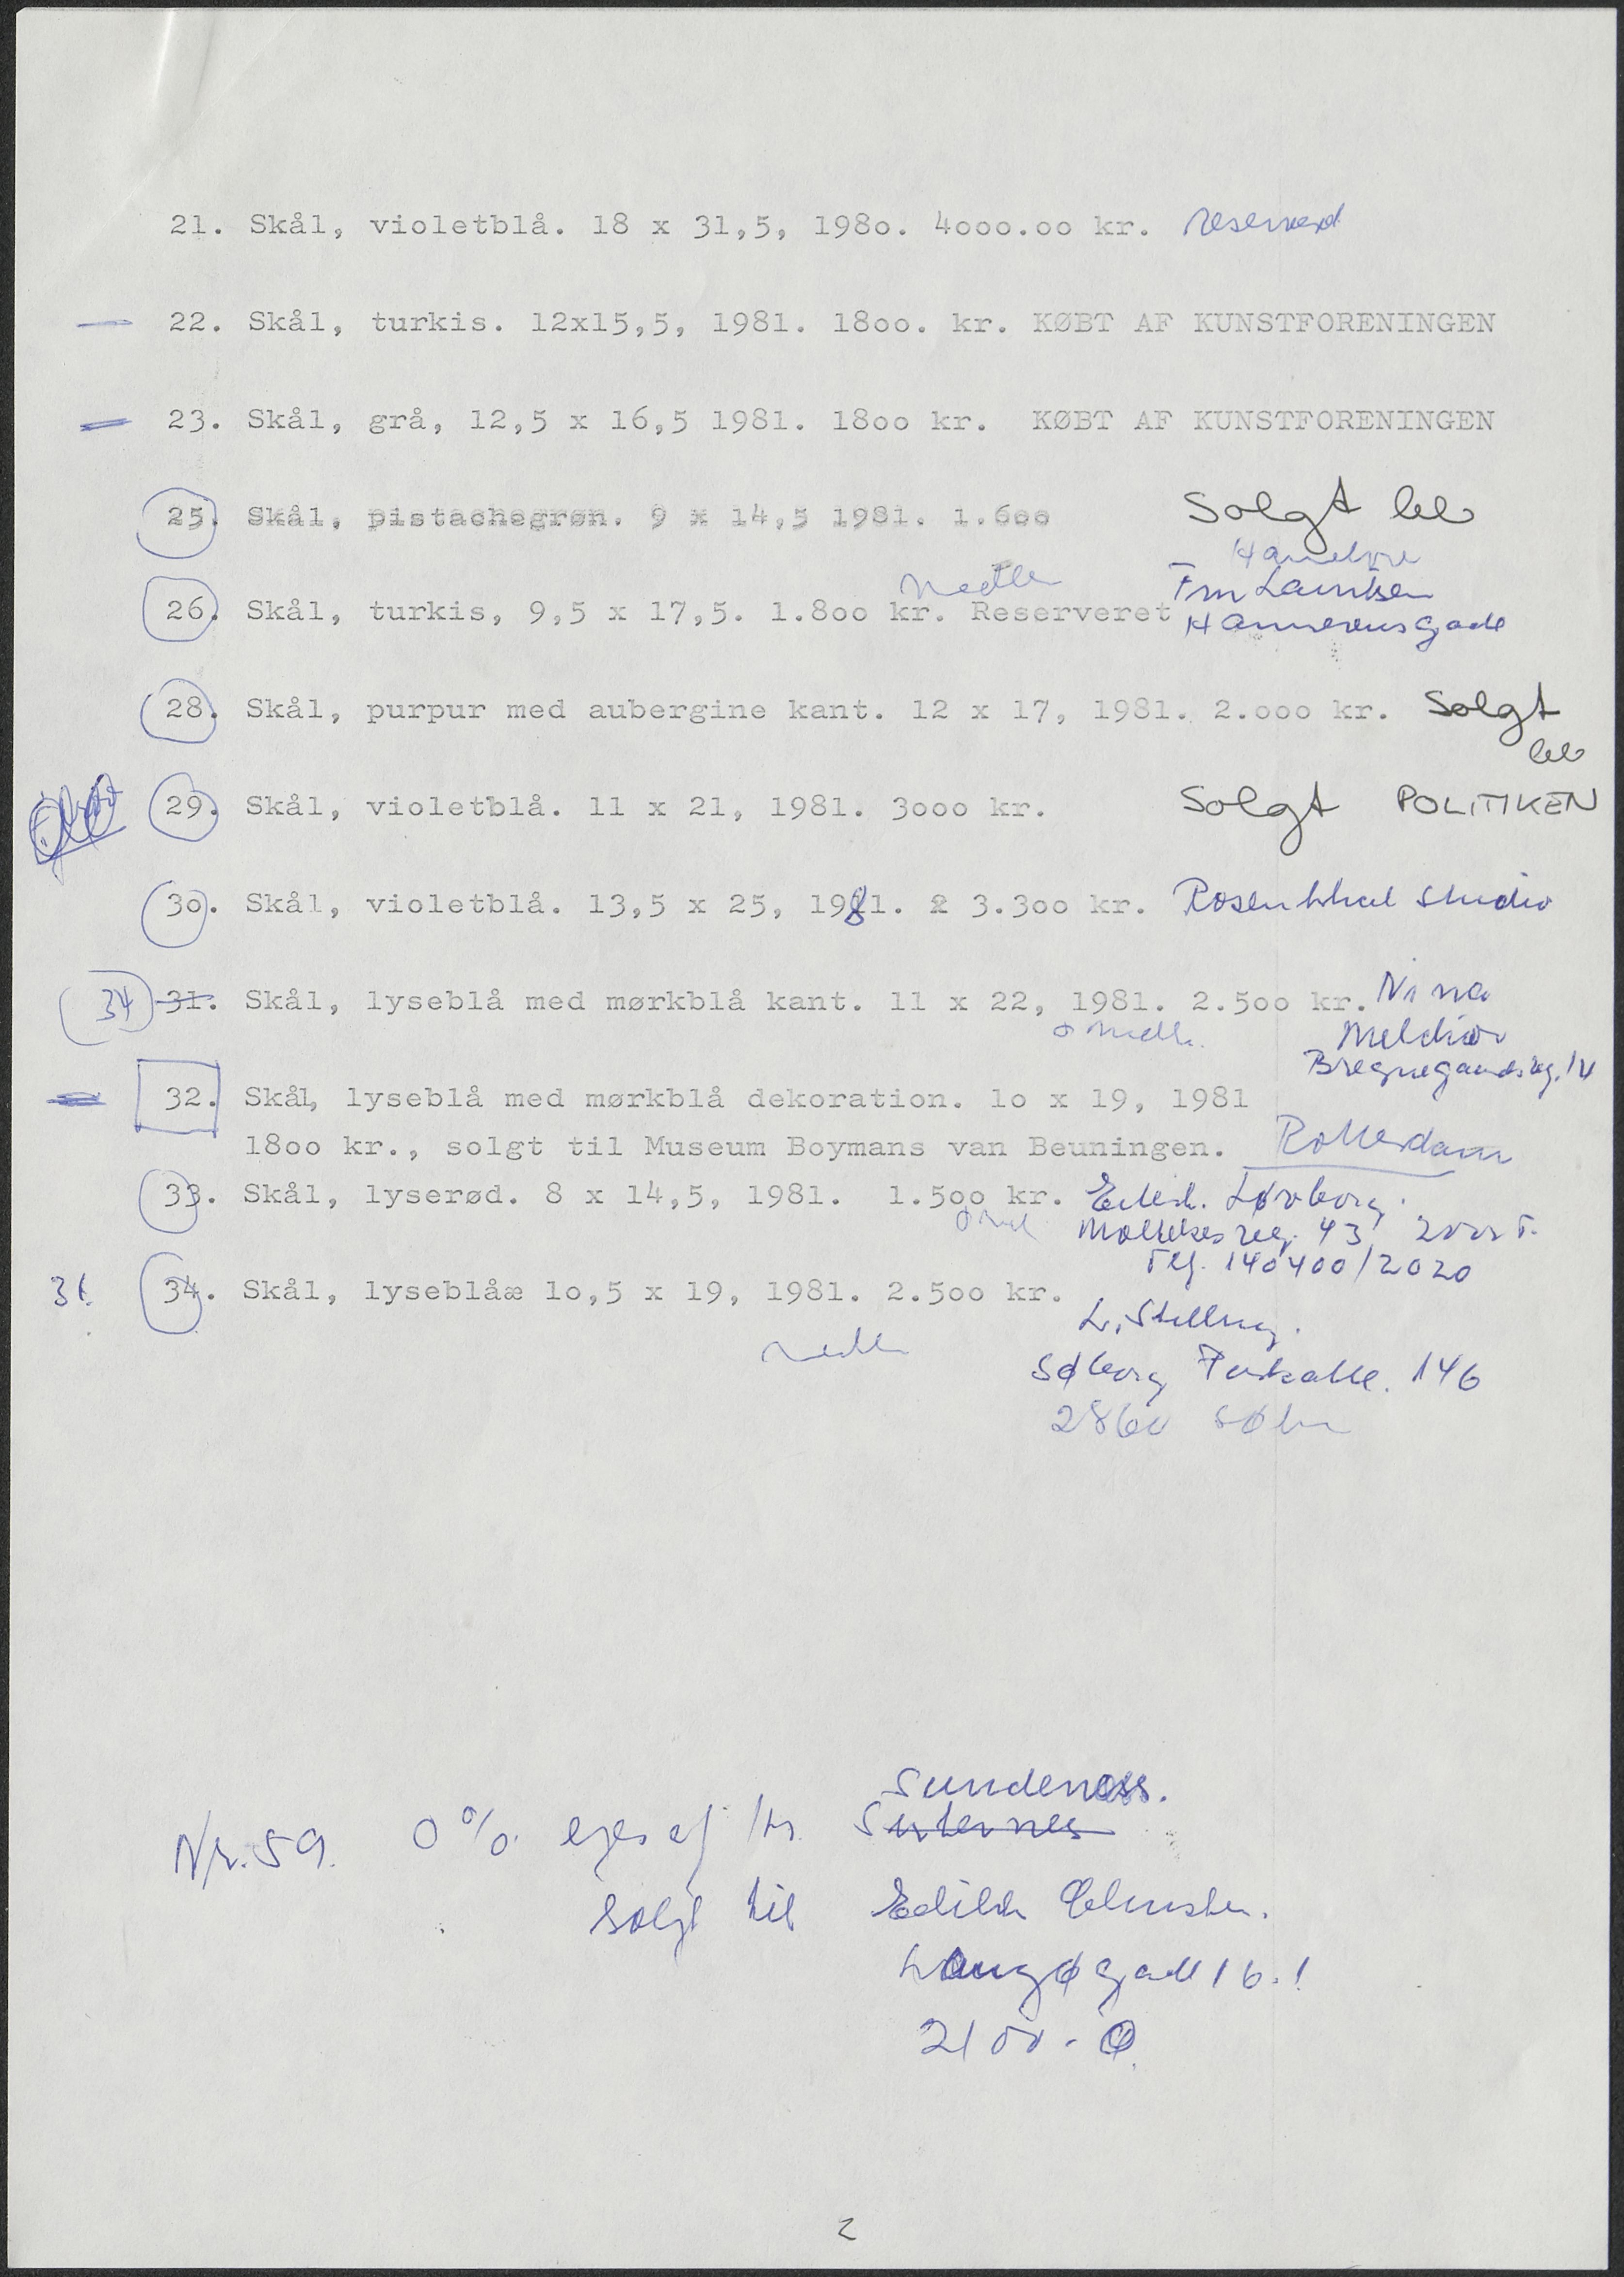 21. Skål, violetblå. 18 x 31,5, 198o. 4ooo.oo kr. reserveret
22. Skål, turkis. 12x15,5, 1981. 18oo. kr. KØBT AF KUNSTFORENINGEN
23. Skål, grå, 12,5 x 16,5 1981. 18oo kr. KØBT AF KUNSTFORENINGEN
25. Skål, pistachegrøn. 9 x 14,5 1981. 1.6oo Solgt
26. Skål, turkis, 9,5 x 17,5. 1.8oo kr. Reserveret
28. Skål, purpur med aubergine kant. 12 x 17, 1981. 2.ooo kr. Solgt
29. Skål, violetblå. 11 x 21, 1981. 3ooo kr. Solgt POLITIKEN
3o. Skål, violetblå. 13,5 x 25, 1981. 2 3.3oo kr. Rosenthal Studio
34 31. Skål, lyseblå med mørkblå kant. 11 x 22, 1981. 2.5oo kr. Nina
Melchior
32. Skål, lyseblå med mørkblå dekoration. lo x 19, 1981
18oo kr., solgt til Museum Boymans van Beuningen. Rotterdam
33. Skål, lyserød. 8 x 14,5, 1981. 1.5oo kr. Løvborg.
43
Tlf. 140400/2020
31. 34. Skål, lyseblåæ lo,5 x 19, 1981. 2.5oo kr.
Søborg Parkalle. 146
2860
Nr. 59. 0% ejes af hr.
Solgt til Edith
Langøgade 16.1
2100 - Ø.
2